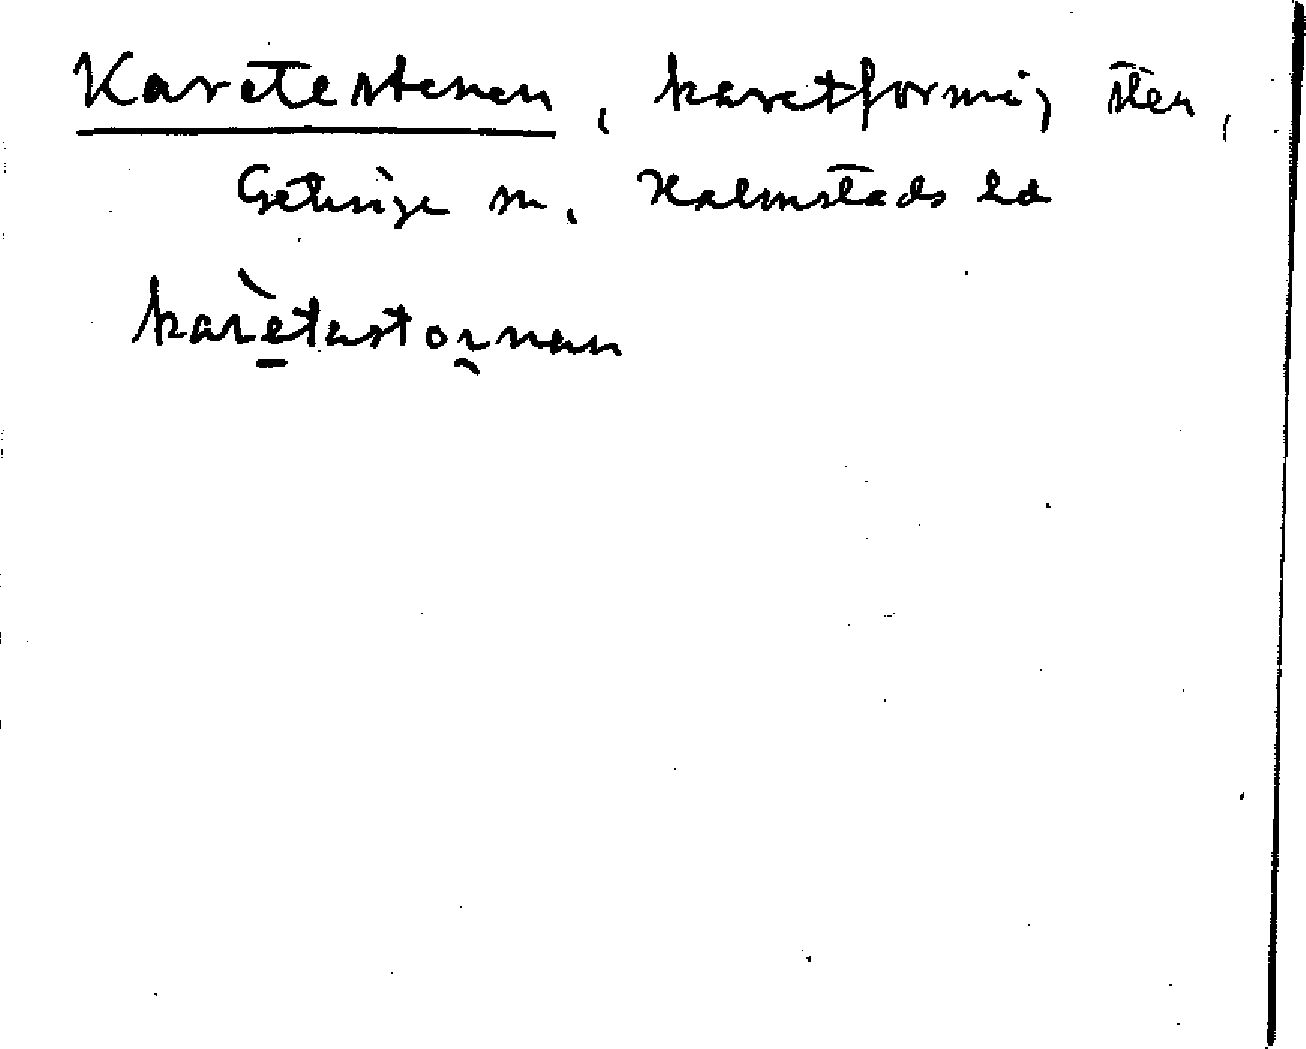 Karetestenen, karetformig sten,
Getinge sn, Halmstads hd
karètastornan